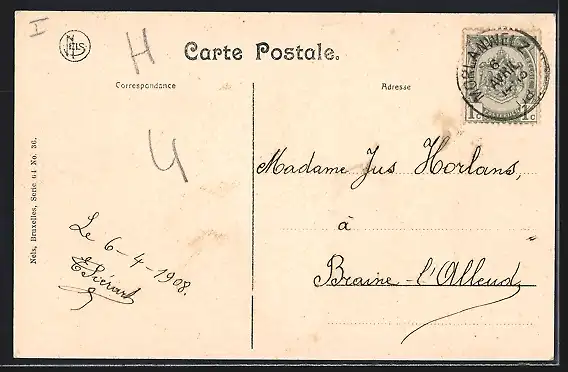 I
H
NELS
Carte Postale.
MORLANWELZ
6
AVRIL
Correspondance
Adresse
1c 1c
U
Madame Jus Horlans,
à
Braine-l'Alleud
Le 6-4-1908.
E Piérart
Nels, Bruxelles, Serie 64 No. 36.